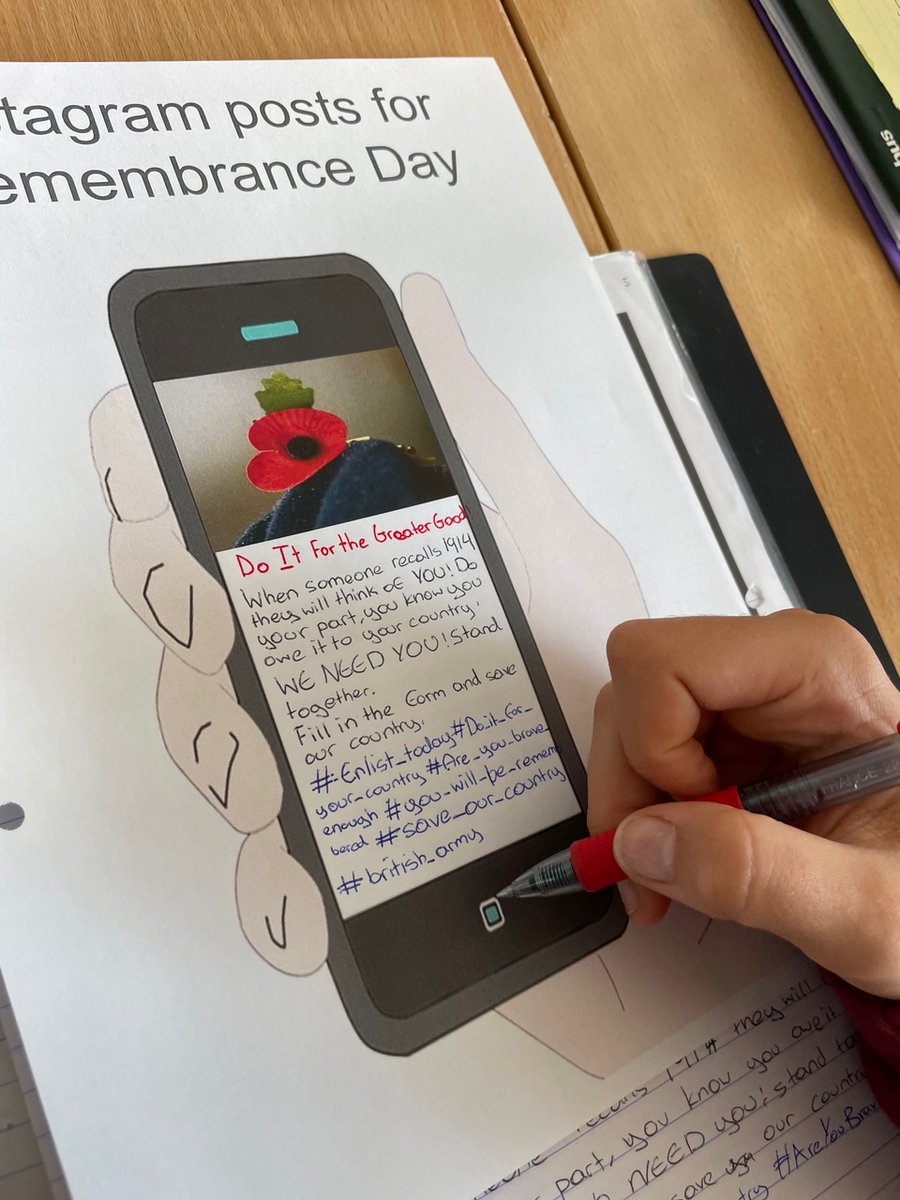 tagram posts for
emembrance Day
Do It For the Greater Good!
When someone recalls 1914
they will think of YOU! Do
your part, you know you
owe it to your country!
WE NEED YOU! Stand
together.
Fill in the form and save
our country.
#Enlist_today #Do_it_for_
your_country #Are_you_brave_
enough #you_will_be_remem
bered #save_our_country
#british_army
they will
part, you know you owe it
NEED YOU! stand to
save our country
#AreYouBrav
FRANCE
hus